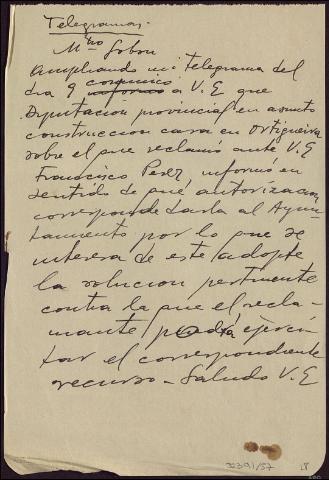 Telegramas.
Mtro Gobon
Ampliando mi telegrama del
dia 9 comunico a V. E que
Diputacion provincial en asunto
construccion casa en Ortigueira
sobre el que reclamó ante V. E
Francisco Perez, informó en
sentido de que autorizacion
corresponde darla al Ayun-
tamiento por lo que se
interesa de este adopte
la solucion pertinente
contra la que el recla-
mante podrá ejerci-
tar el correspondiente
recurso - Saludo V. E